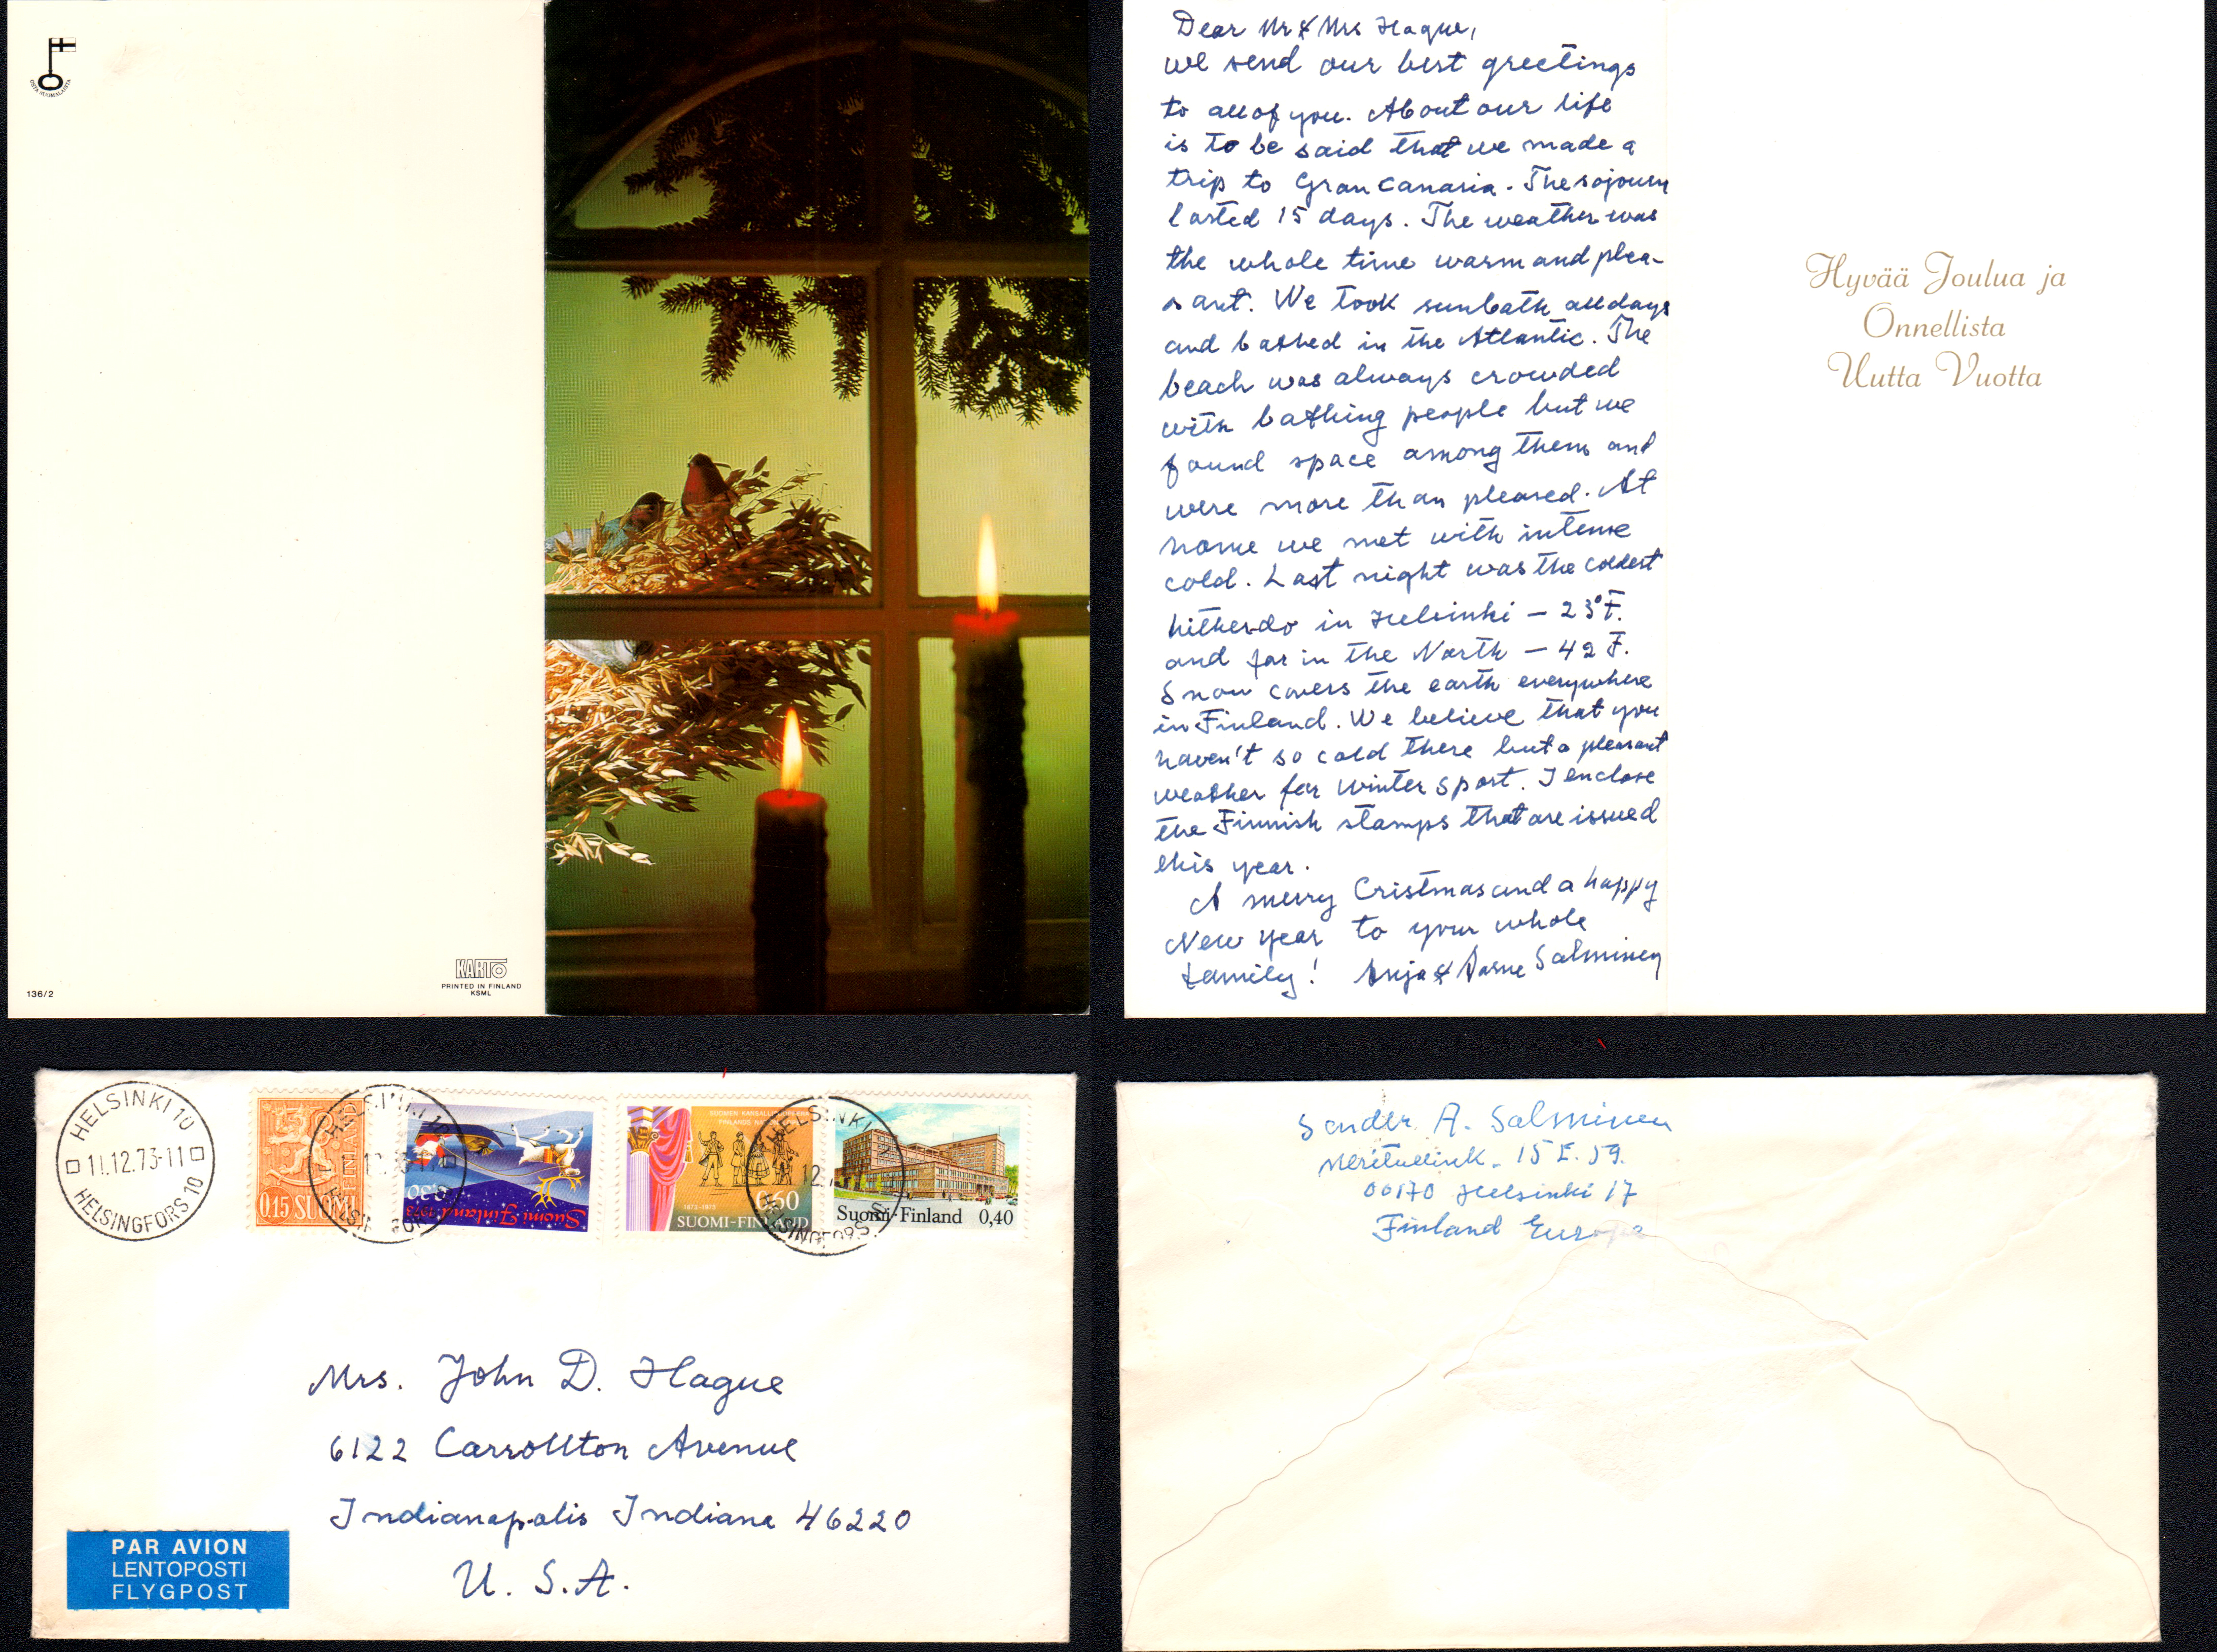 OSTA SUOMALAISTA
136/2
KARTO
PRINTED IN FINLAND
KSML
Dear Mr & Mrs Hague,
we send our best greetings
to all of you. About our life
is to be said that we made a
trip to Gran Canaria. The sojourn
lasted 15 days. The weather was
the whole time warm and plea-
sant. We took sunbath all days
and bathed in the Atlantic. The
beach was always crowded
with bathing people but we
found space among them and
were more than pleased. At
home we met with intense
cold. Last night was the coldest
hitherdo in Helsinki – 23°F.
and far in the North – 42 F.
Snow covers the earth everywhere
in Finland. We believe that you
haven't so cold there but a pleasant
weather for winter sport. I enclose
the Finnish stamps that are issued
this year.
A merry Cristmas and a happy
New Year to your whole
family! Anja & Aarne Salminen
Hyvää Joulua ja
Onnellista
Uutta Vuotta
HELSINKI 10
11.12.73-11
HELSINGFORS 10
0.15 SUOMI
FINLAND
Suomi Finland 1973
0,30
SUOMEN KANSALLISTEATTERI
1873-1973
0,60
SUOMI-FINLAND
Suomi-Finland 0,40
Mrs. John D. Hague
6122 Carrollton Avenue
Indianapolis Indiana 46220
U. S. A.
PAR AVION
LENTOPOSTI
FLYGPOST
Sender A. Salminen
15 E. 59.
00170 Helsinki 17
Finland Europe